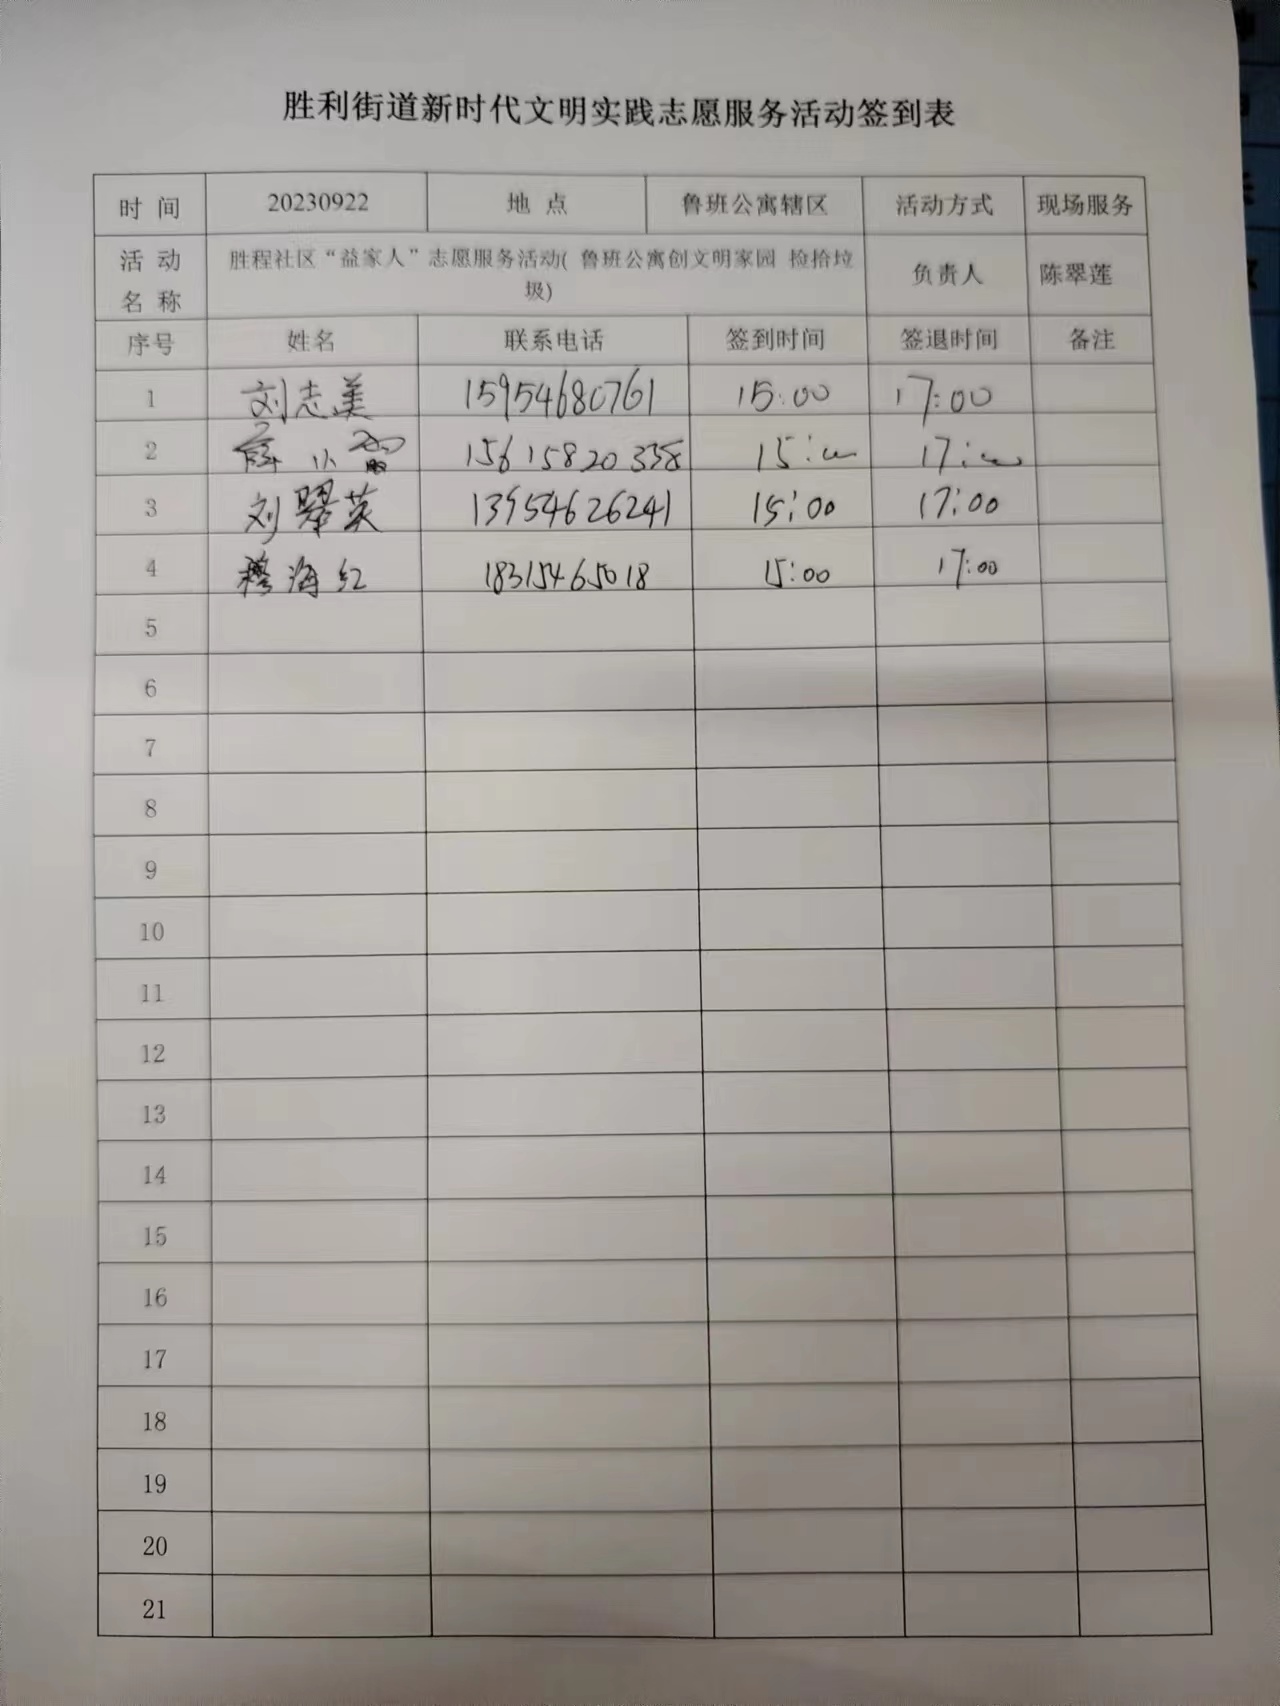 胜利街道新时代文明实践志愿服务活动签到表
时 间 20230922 地 点 鲁班公寓辖区 活动方式 现场服务
活 动 名 称 胜程社区“益家人”志愿服务活动( 鲁班公寓创文明家园 捡拾垃圾) 负责人 陈翠莲
序号 姓名 联系电话 签到时间 签退时间 备注
1 刘志美 15954680761 15:00 17:00
2 薛小雷 15615820338 15:00 17:00
3 刘翠英 13954626241 15:00 17:00
4 穆海红 18315465018 15:00 17:00
5
6
7
8
9
10
11
12
13
14
15
16
17
18
19
20
21